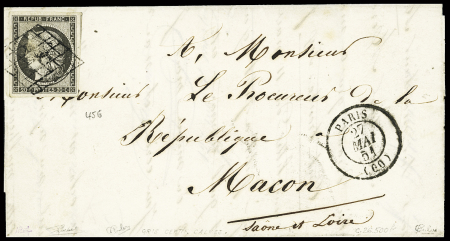 REPUB. FRANC.
20 CENTIMES 20 C
A, Monsieur
Monsieur Le Procureur de la
456
République
Macon
Saône et Loire
PARIS
27
MAI
51
(60)